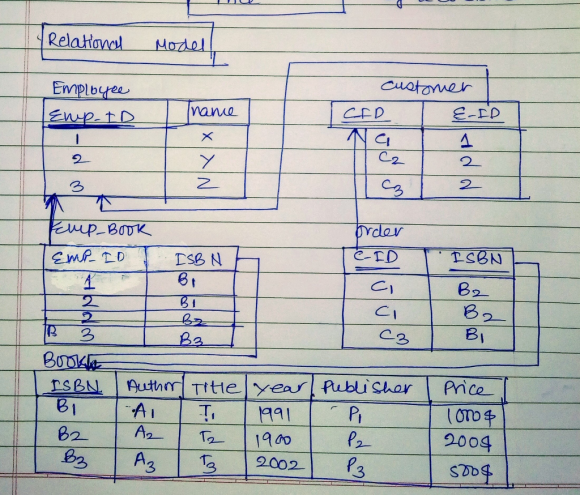 Price
Relational Model
Employee
Emp_ID name
1 X
2 Y
3 Z
Customer
CID E-ID
C1 1
C2 2
C3 2
Emp_Book
Emp_ID ISBN
1 B1
2 B1
2 B2
3 B3
order
C-ID ISBN
C1 B2
C1 B2
C3 B1
Book
ISBN Author Title year Publisher Price
B1 A1 T1 1991 P1 1000$
B2 A2 T2 1900 P2 200$
B3 A3 T3 2002 P3 500$